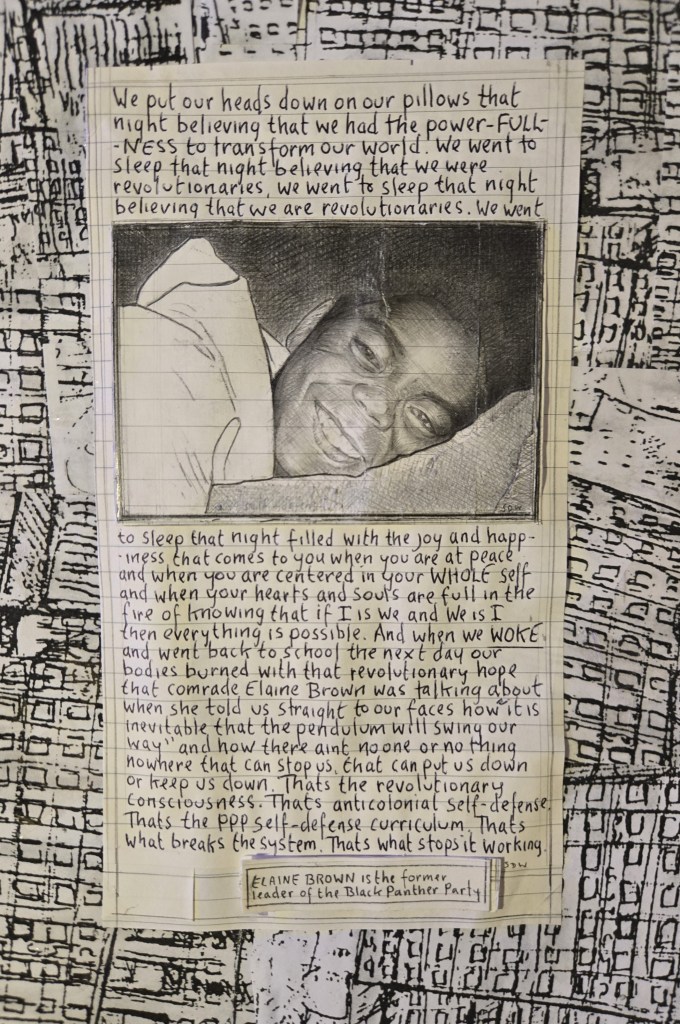 We put our heads down on our pillows that
night believing that we had the power-FULL-
-NESS to transform our world. We went to
sleep that night believing that we were
revolutionaries, we went to sleep that night
believing that we are revolutionaries. We went
SDW
to sleep that night filled with the joy and happ-
-iness that comes to you when you are at peace
and when you are centered in your WHOLE self
and when your hearts and souls are full in the
fire of knowing that if I is we and We is I
then everything is possible. And when we WOKE
and went back to school the next day our
bodies burned with that revolutionary hope
that comrade Elaine Brown was talking about
when she told us straight to our faces how "it is
inevitable that the pendulum will swing our
way" and how there aint no one or no thing
nowhere that can stop us, that can put us down
or keep us down. Thats the revolutionary
consciousness. Thats anticolonial self-defense.
Thats the PPP self-defense curriculum. Thats
what breaks the system. Thats what stops it working.
SDW
ELAINE BROWN is the former
leader of the Black Panther Party